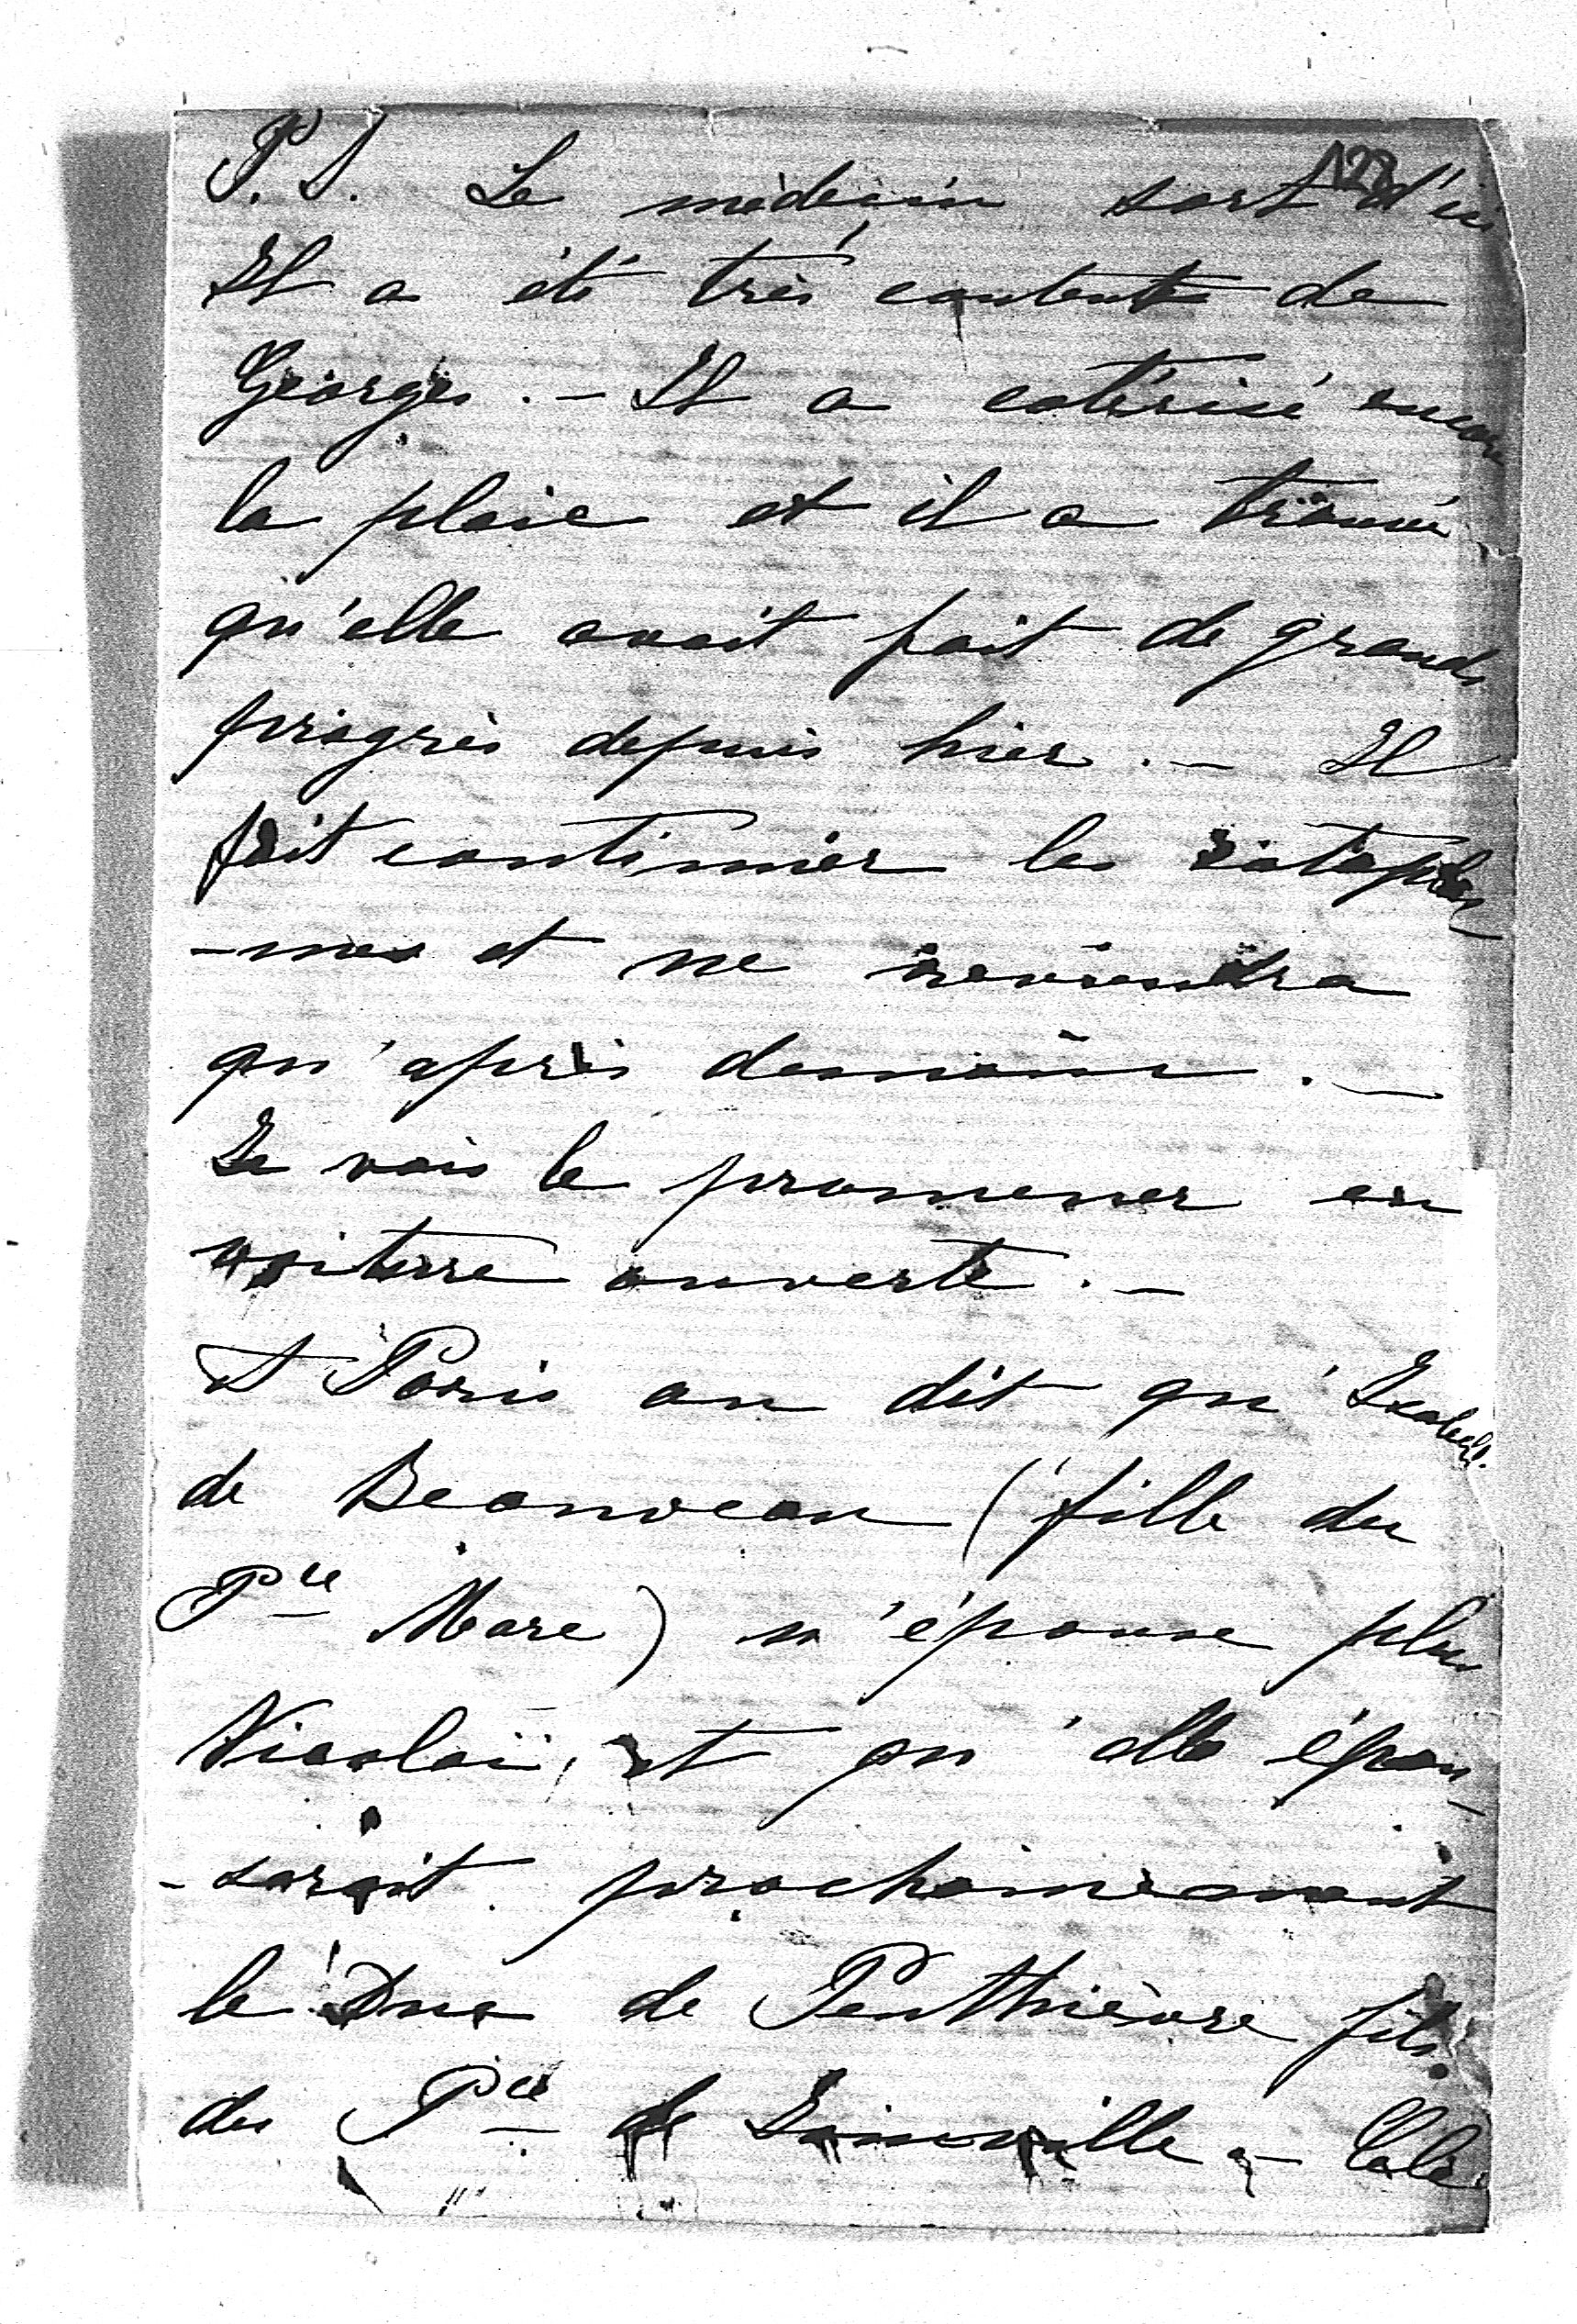 128
P.S. Le médecin sort d'ici
Il a été très content de
Georges. - Il a cotérisé encore
la plaie et il a trouvé
qu'elle avait fait de grands
progrès depuis hier. - Il
fait continuer les cataplas
-mes et ne reviendra
qu'après demain. -
Je vais le promener en
voiture ouverte. -
A Paris on dit qu'Isabelle
de Beauveau (fille du
Pce Marc) n'épouse plus
Nicolaï, et qu'elle épou-
-serait prochainement
le Duc de Penthièvre fils
du Pce de Joinville - Cela